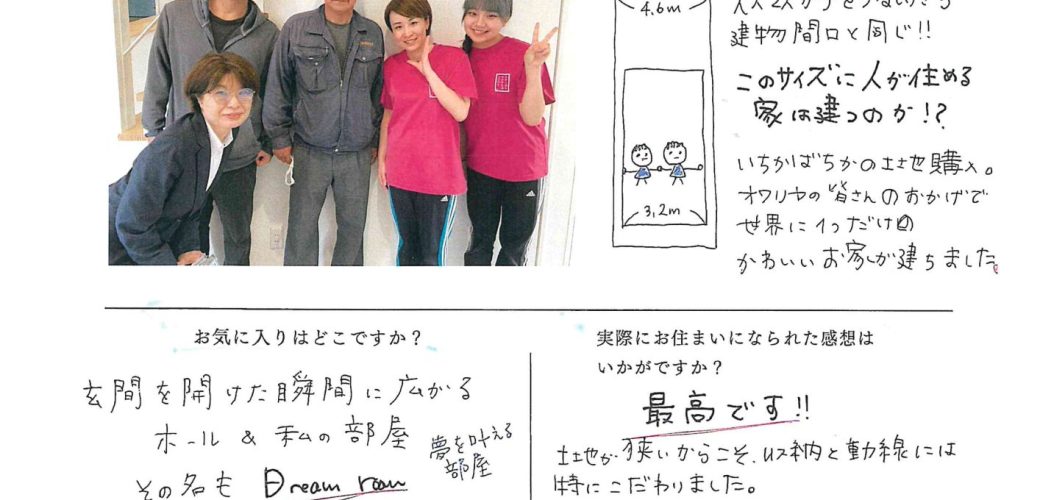 4.6m
建物間口と同じ!!
このサイズに人が住める
家は建つのか!?
いちかばちかの土地購入。
オワリヤの皆さんのおかげで
世界に1つだけの
かわいいお家が建ちました。
3,2m
お気に入りはどこですか？
玄関を開けた瞬間に広がる
ホール & 私の部屋
その名も Dream room
夢を叶える
部屋
実際にお住まいになられた感想は
いかがですか？
最高です!!
土地が狭いからこそ、収納と動線には
特にこだわりました。